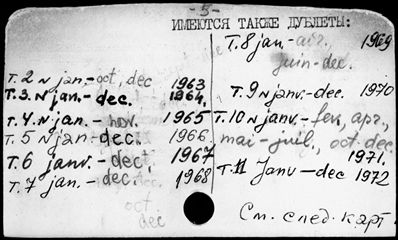 - 5 -
ИМЕЮТСЯ ТАКЖЕ ДУБЛЕТЫ:
T.2 N jan.- oct, dec 1963
T.3. N jan.- dec. 1964,
T.4. N jan.- nov. 1965
T.5 N jan-dec. 1966
T.6 janv.- dec. 1967
T.7 jan. - dec. 1968
oct
dec
T.8 jan.- avr. 1969
juin-dec.
T.9 N janv.-dec. 1970
T.10 N janv.- fev, apr.,
mai - juil., oct. dec
1971.
T.11 Janv - dec 1972
См. след. карт.